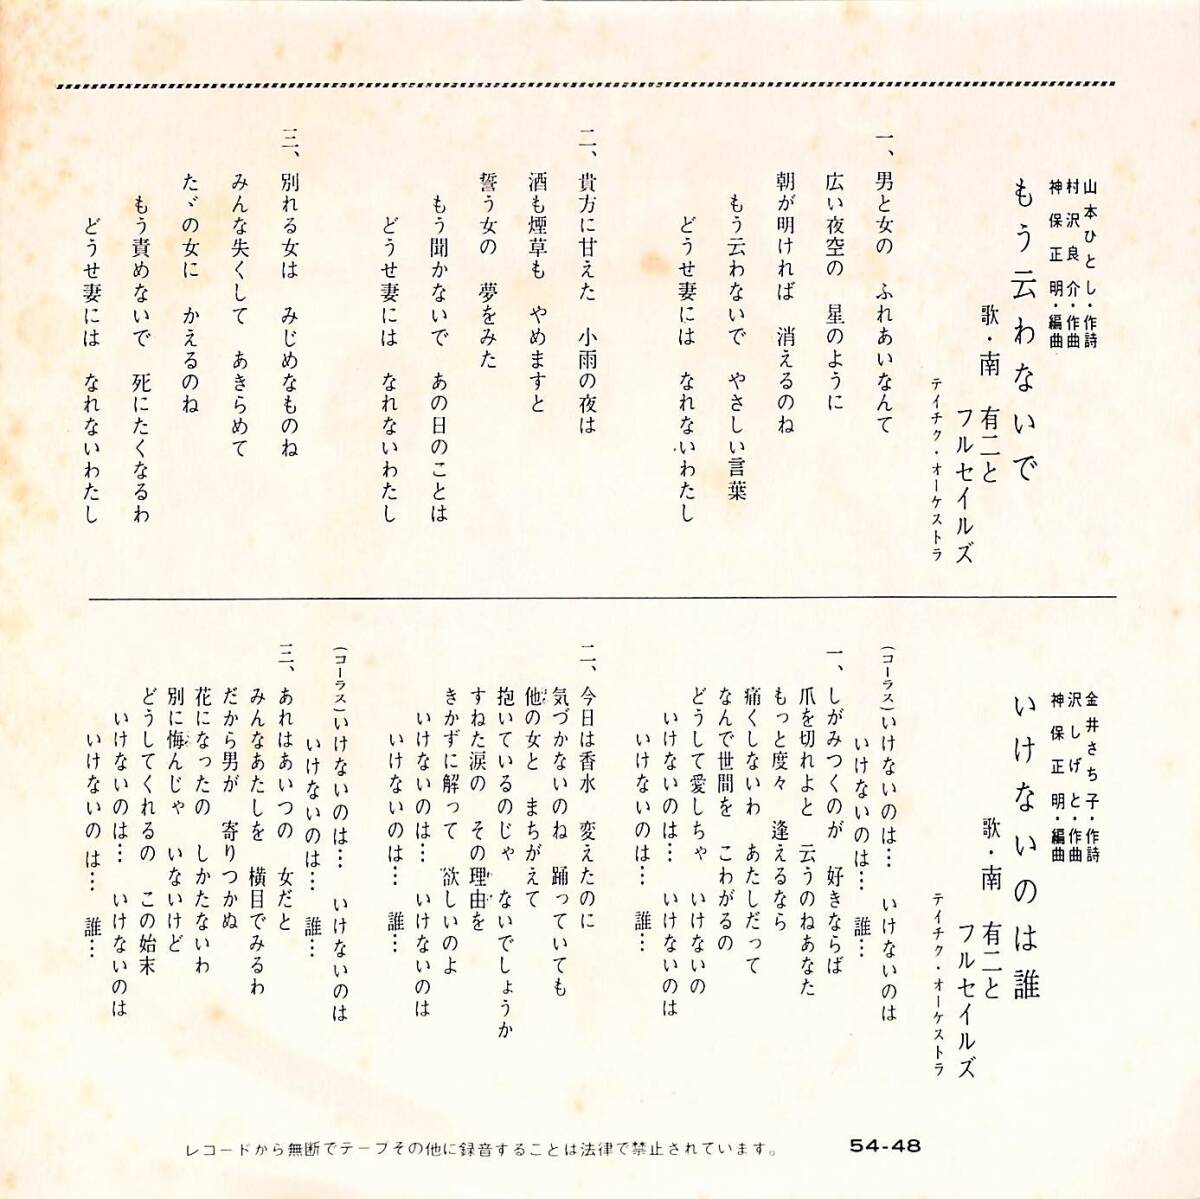 山本ひとし・作詩
村沢良介・作曲
神保正明・編曲
もう云わないで
歌・南 有二と
フルセイルズ
テイチク・オーケストラ
一、男と女の ふれあいなんて
広い夜空の 星のように
朝が明ければ 消えるのね
もう云わないで やさしい言葉
どうせ妻には なれないわたし
二、貴方に甘えた 小雨の夜は
酒も煙草も やめますと
誓う女の 夢をみた
もう聞かないで あの日のことは
どうせ妻には なれないわたし
三、別れる女は みじめなものね
みんな失くして あきらめて
たゞの女に かえるのね
もう責めないで 死にたくなるわ
どうせ妻には なれないわたし
金井さち子・作詩
沢しげと・作曲
神保正明・編曲
いけないのは誰
歌・南 有二と
フルセイルズ
テイチク・オーケストラ
(コーラス)いけないのは… いけないのは
いけないのは… 誰…
一、しがみつくのが 好きならば
爪を切れよと 云うのねあなた
もっと度々 逢えるなら
痛くしないわ あたしだって
なんで世間を こわがるの
どうして愛しちゃ いけないの
いけないのは… いけないのは
いけないのは… 誰…
二、今日は香水 変えたのに
気づかないのね 踊っていても
他の女と まちがえて
抱いているのじゃ ないでしょうか
すねた涙の その理由を
きかずに解って 欲しいのよ
いけないのは… いけないのは
いけないのは… 誰…
(コーラス)いけないのは… いけないのは
いけないのは… 誰…
三、あれはあいつの 女だと
みんなあたしを 横目でみるわ
だから男が 寄りつかぬ
花になったの しかたないわ
別に悔んじゃ いないけど
どうしてくれるの この始末
いけないのは… いけないのは
いけないのは… 誰…
レコードから無断でテープその他に録音することは法律で禁止されています。 54-48